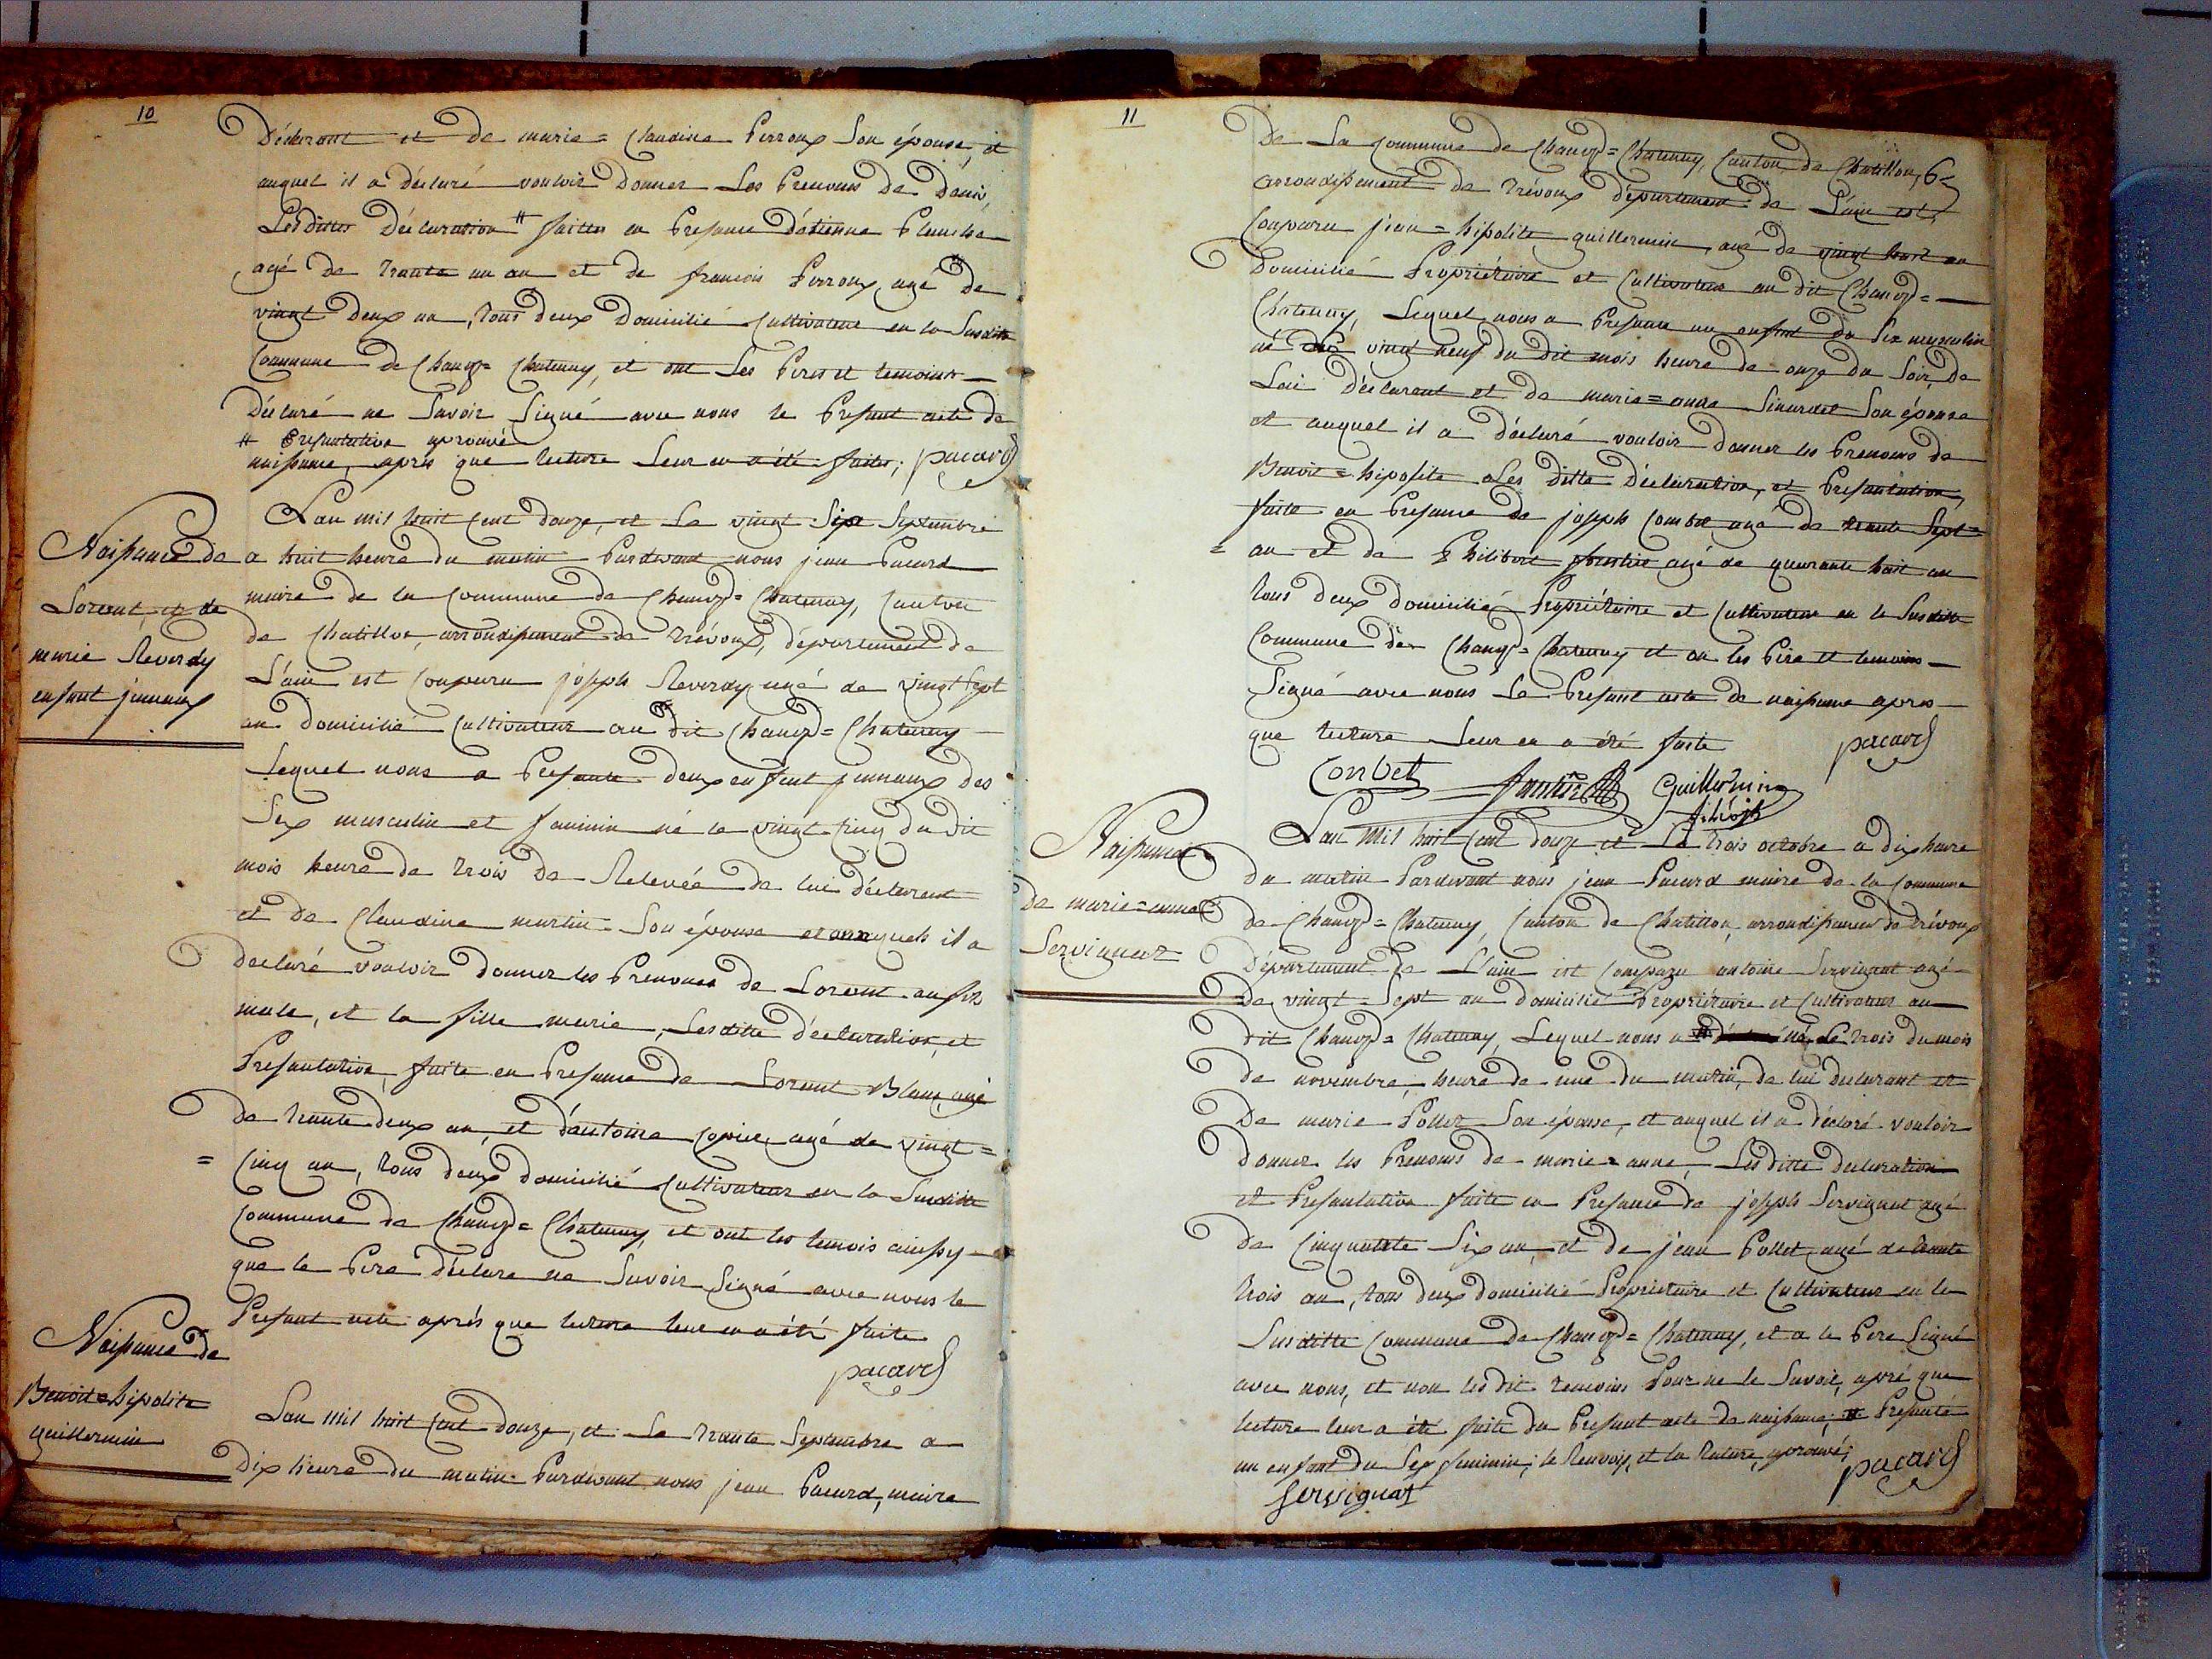 10
Déclarant et de marie = Claudine Perroux Son épouse, et
auquel il a déclaré vouloir Donner Les Prenoms de Denis,
Lesdittes Déclaration # faittes en Presance d'étienne Planche
agé de trante un an et de francois Perroux, agé de
vingt deux an, tous deux Domicilié Cultivateur en la Susditte
Commune de Chaney = Chatenay, et ont Les Peres et temoins
Déclaré ne Savoir Signé avec nous le Presant acte de
# Presantation aprouvé
naissance, apres que lecture Leur en a été faite; pacard
Naissance de
Lorent, et de
marie Reverdy
enfant jumaux
Lan mil huit Cent douze, et Le vingt Sixe Septembre
a huit heure du matin Pardevant nous jean Pacard
maire de la Commune de Chaney = Chatenay, Canton
de Chatillon, arrondissement de Trévoux, département de
L'ain est Conparu joseph Reverdy agé de vingt Sept
an Domicilié Cultivateur au dit Chaney = Chatenay
Lequel nous a Presante deux enfant jumaux des
Sex masculin et feminin né le vingt Cinq du dit
mois heure de trois de Relevée de lui déclarent
et de Claudine martin Son épouse et auxquels il a
declaré vouloir donner les Prenoms de Lorent au sex
male, et la fille marie, Lesditte déclaration, et
Presantation, faite en Presance de Lorent Blanc, agé
de trante deux an, et d'antoine Copier, agé de vingt =
= Cinq an, tous deux domicilié Cultivateur en la Susditte
Commune de Chaney = Chatenay, et ont les temois ainssy
que le Pere déclare ne Savoir Signé avec nous le
Presant acte aprés que lecture leur en a été faite
pacard
Naissance de
Benoit = hipolite
guillermin
Lan mil huit Cent douze, et Le trante Septembre a
Dix heure du matin Pardevant nous jean Pacard, maire
11
De La Commune de Chaney = Chatenay, Canton de Chatillon,
arrondissement de Trévoux département de L'ain est
Conparu jean = hipolite guillermin, agé de vingt huit an
Domicilié Propriétaire et Cultivateur au dit Chaney =
Chatenay, Lequel nous a Presante un enfant du Sex masculin
né vingt neuf du dit mois heure de onze du Soir, de
Lui déclarant et de marie = anne Son épouse
et auquel il a déclaré vouloir donner les Prenoms de
Benoit = hipolite Les ditte Déclaration, et Presantation,
faite en Presance de joseph Combet agé de trante Sept
= an et de Philibert agé de quarante huit an
tous deux domicilié Propriétaire et Cultivateur en la Susditte
Commune de Chaney = Chatenay et on les Pere et temoins
Signé avec nous Le Presant acte de naissance apres
que lecture Leur en a été faite pacard
Conbet Guillermin
Naissance
de marie = anne
Servignat
Lan Mil huit Cent douze et Le trois octobre a dix heure
du matin Pardevant nous jean Pacard maire de la Commune
de Chaney = Chatenay, Canton de Chatillon, arrondissement de Trévoux
Département de L'ain est Comparu antoine Servignat agé
de vingt = Sept an domicilié Propriétaire et Cultivateur au
dit Chaney = Chatenay, Lequel nous a # né Le trois du mois
de novembre, heure de une du matin, de lui declarant et
De marie Pollet Son épouse, et auquel il a déclaré vouloir
donner les Prenoms de marie = anne, Les ditte declaration
et Presantation faite en Presance de joseph Servignat agé
de Cinquante Six an, et de jean Pollet, agé de trante
trois an, tous deux domicilié Proprietaire et Cultivateur en la
Susditte Commune de Chaney = Chatenay, et a le Pere Signé
avec nous, et non les dit temoins Pour ne le Savoir, apré que
lecture leur a été faite du Presant acte de naissance; # Presanté
un enfant du Sex feminin; le Renvoy, et la Rature, aprouvé; pacard
Servignat